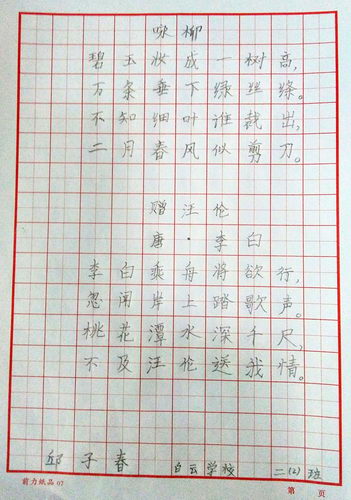 咏柳
碧玉妆成一树高,
万条垂下绿丝绦。
不知细叶谁裁出,
二月春风似剪刀。
赠汪伦
唐·李白
李白乘舟将欲行,
忽闻岸上踏歌声。
桃花潭水深千尺,
不及汪伦送我情。
邱子春 白云学校 二(2)班
前力纸品 07 第 页